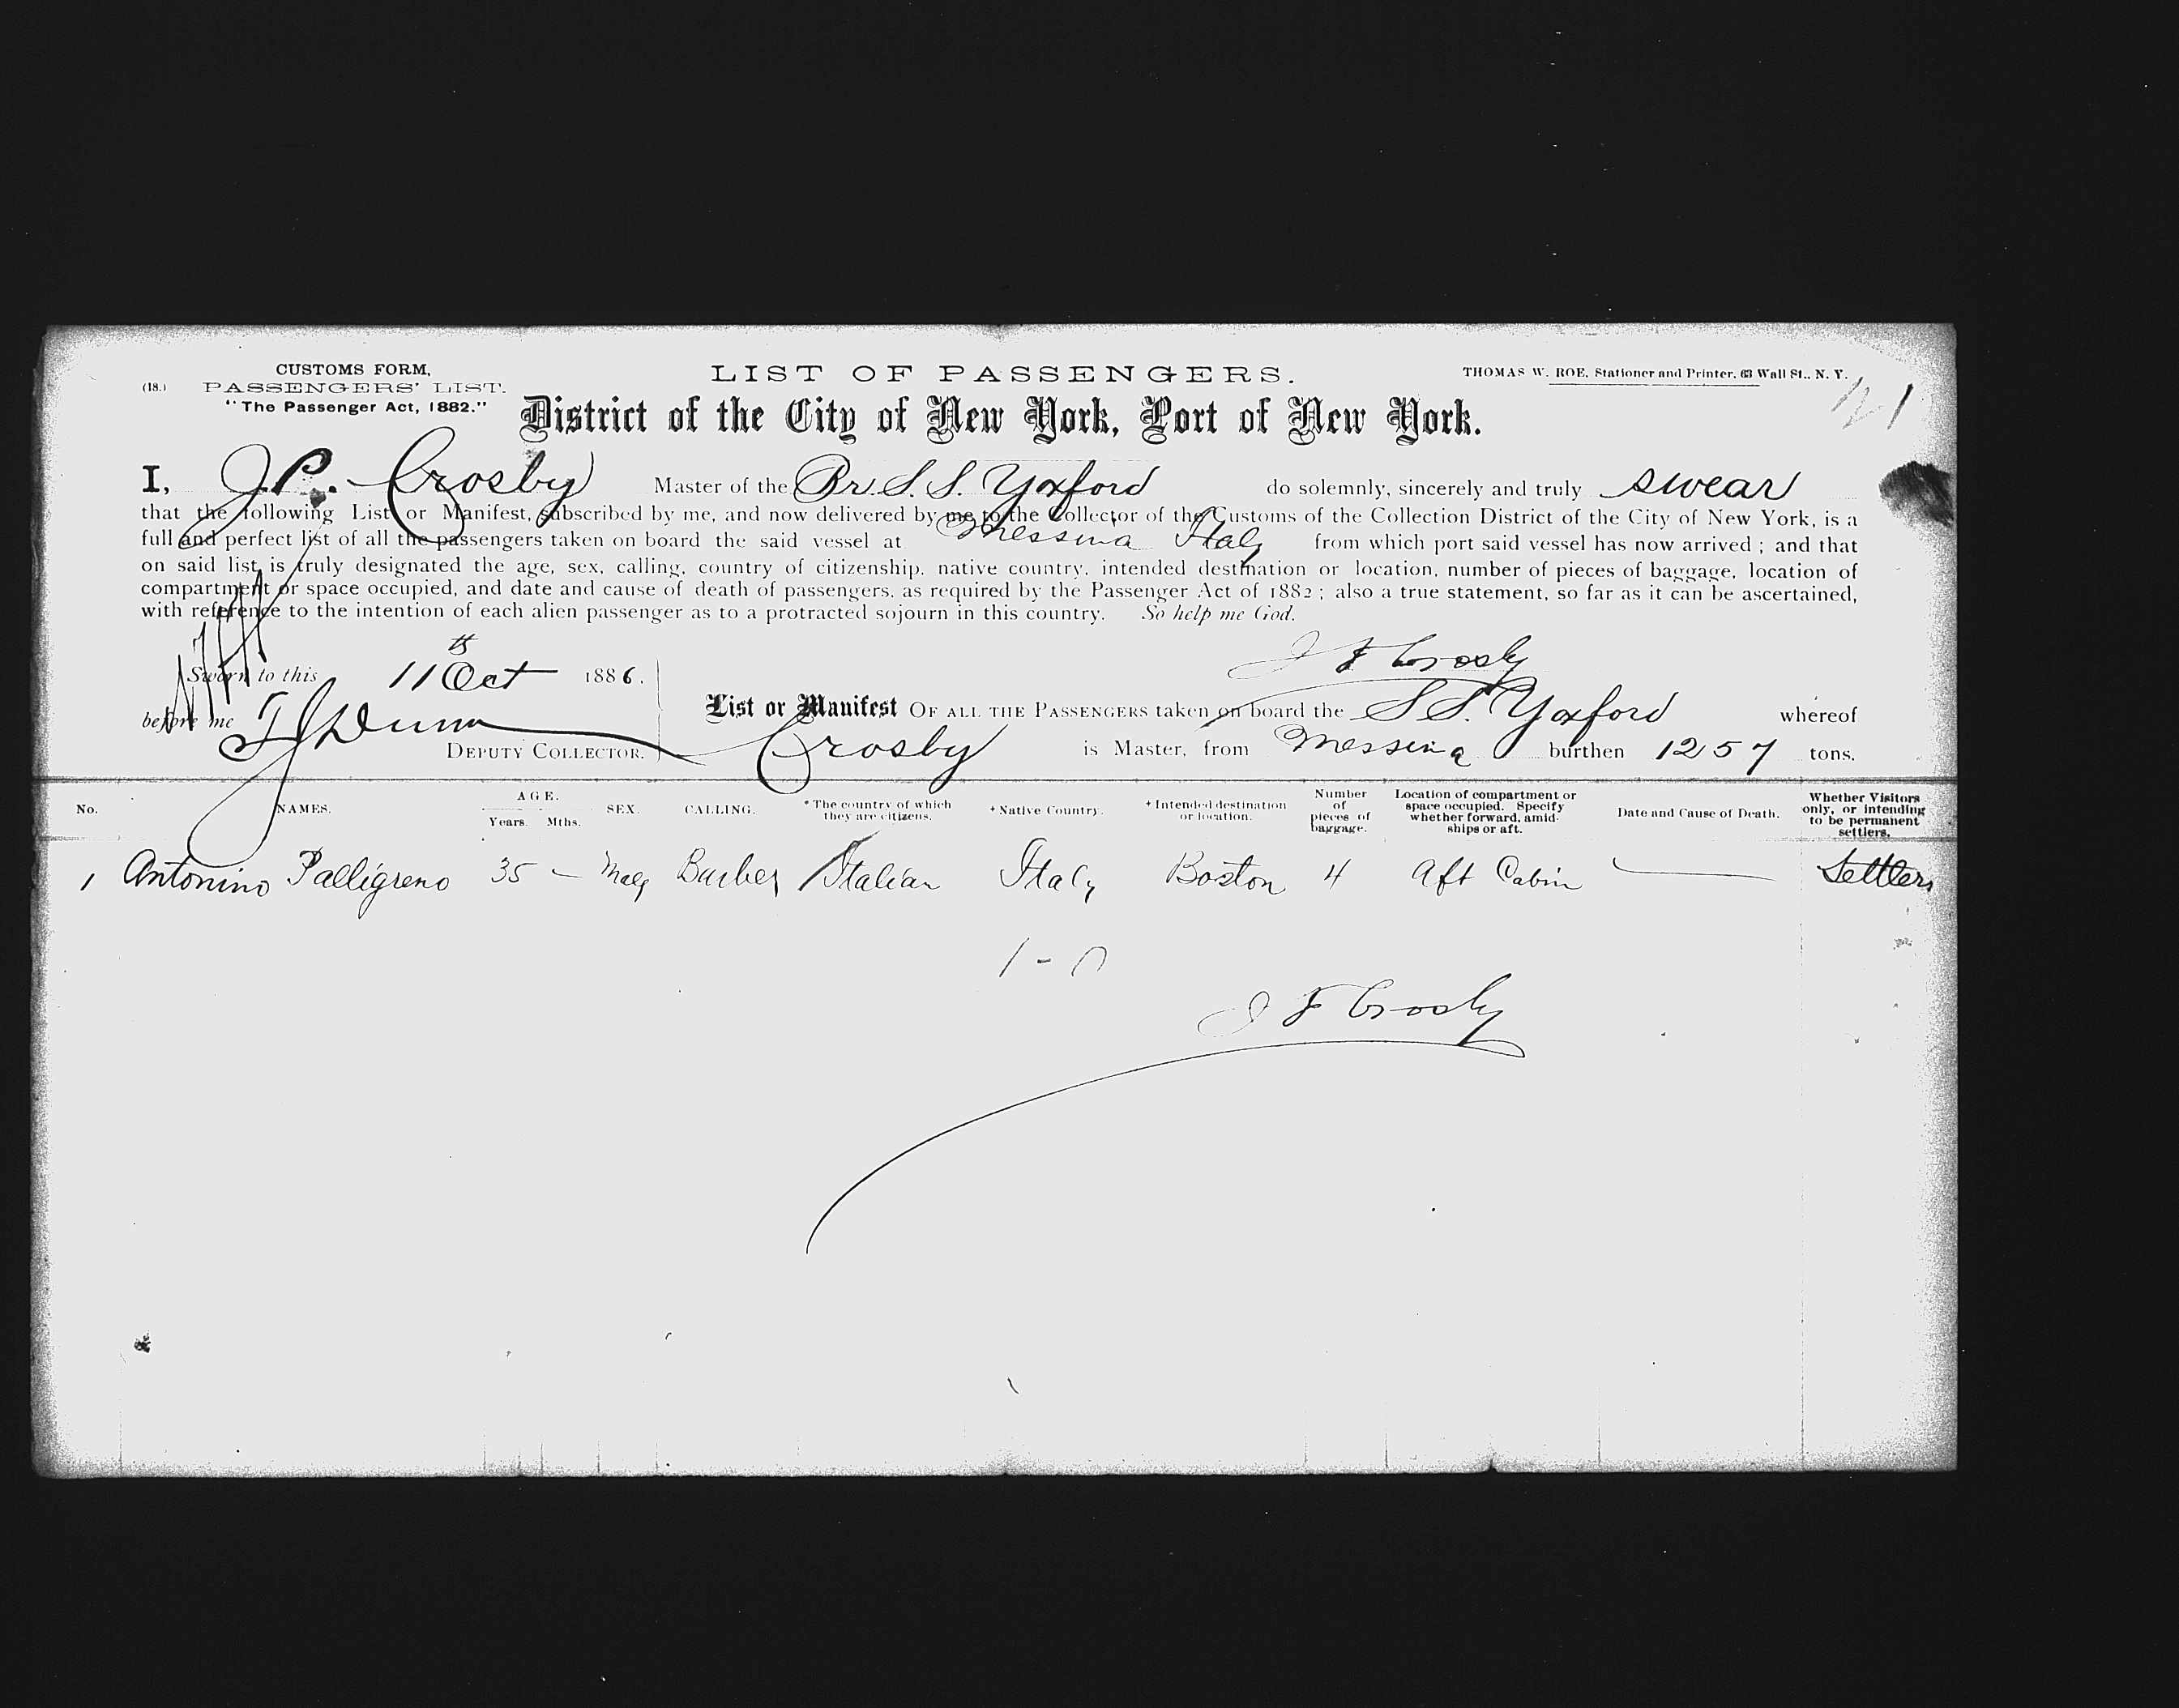 (18.)
CUSTOMS FORM,
PASSENGERS' LIST.
"The Passenger Act, 1882."
LIST OF PASSENGERS.
THOMAS W. ROE, Stationer and Printer, 63 Wall St., N. Y.
District of the City of New York, Port of New York.
I, J.P. Crosby Master of the Br. S. S. Yoxford do solemnly, sincerely and truly swear
that the following List or Manifest, subscribed by me, and now delivered by me to the Collector of the Customs of the Collection District of the City of New York, is a
full and perfect list of all the passengers taken on board the said vessel at Messina Italy from which port said vessel has now arrived ; and that
on said list is truly designated the age, sex, calling, country of citizenship, native country, intended destination or location, number of pieces of baggage, location of
compartment or space occupied, and date and cause of death of passengers, as required by the Passenger Act of 1882 ; also a true statement, so far as it can be ascertained,
with reference to the intention of each alien passenger as to a protracted sojourn in this country. So help me God.
Sworn to this 11th Oct 1886.
J F Crosby
before me T J Dunn
DEPUTY COLLECTOR.
List or Manifest OF ALL THE PASSENGERS taken on board the S S. Yoxford whereof
Crosby is Master, from Messina burthen 1257 tons.
No. NAMES. AGE. Years. Mths. SEX. CALLING. * The country of which they are citizens. + Native Country. + Intended destination or location. Number of pieces of baggage. Location of compartment or space occupied. Specify whether forward, amidships or aft. Date and Cause of Death. Whether Visitors only, or intending to be permanent settlers.
1 Antonino Palligreno 35 – Male Barber Italian Italy Boston 4 Aft Cabin — Settlers
J F Crosby